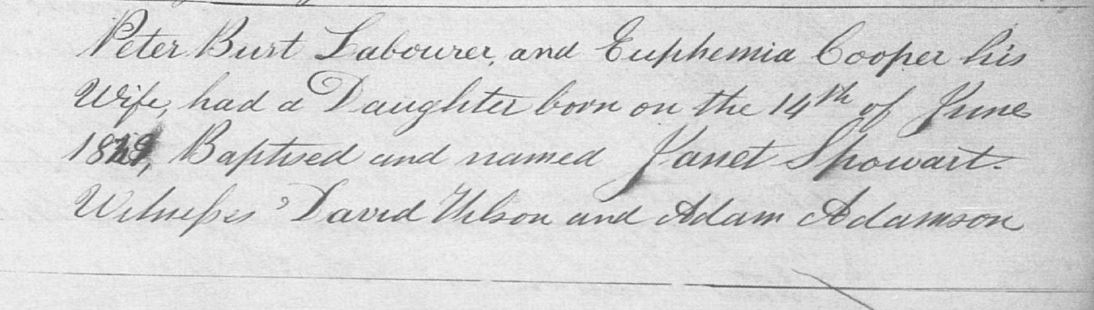 Peter Burt Labourer, and Euphemia Cooper his
Wife, had a Daughter born on the 14th of June
Baptised and named Janet Showart.
Witnesses David Wilson and Adam Adamson